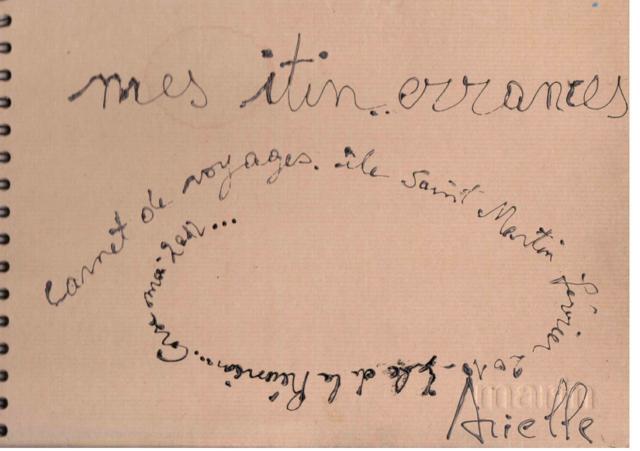 mes itin..errances
Carnet de voyages. île Saint Martin février 2010 - Île de la Réunion... Corse mai 2012...
Arielle